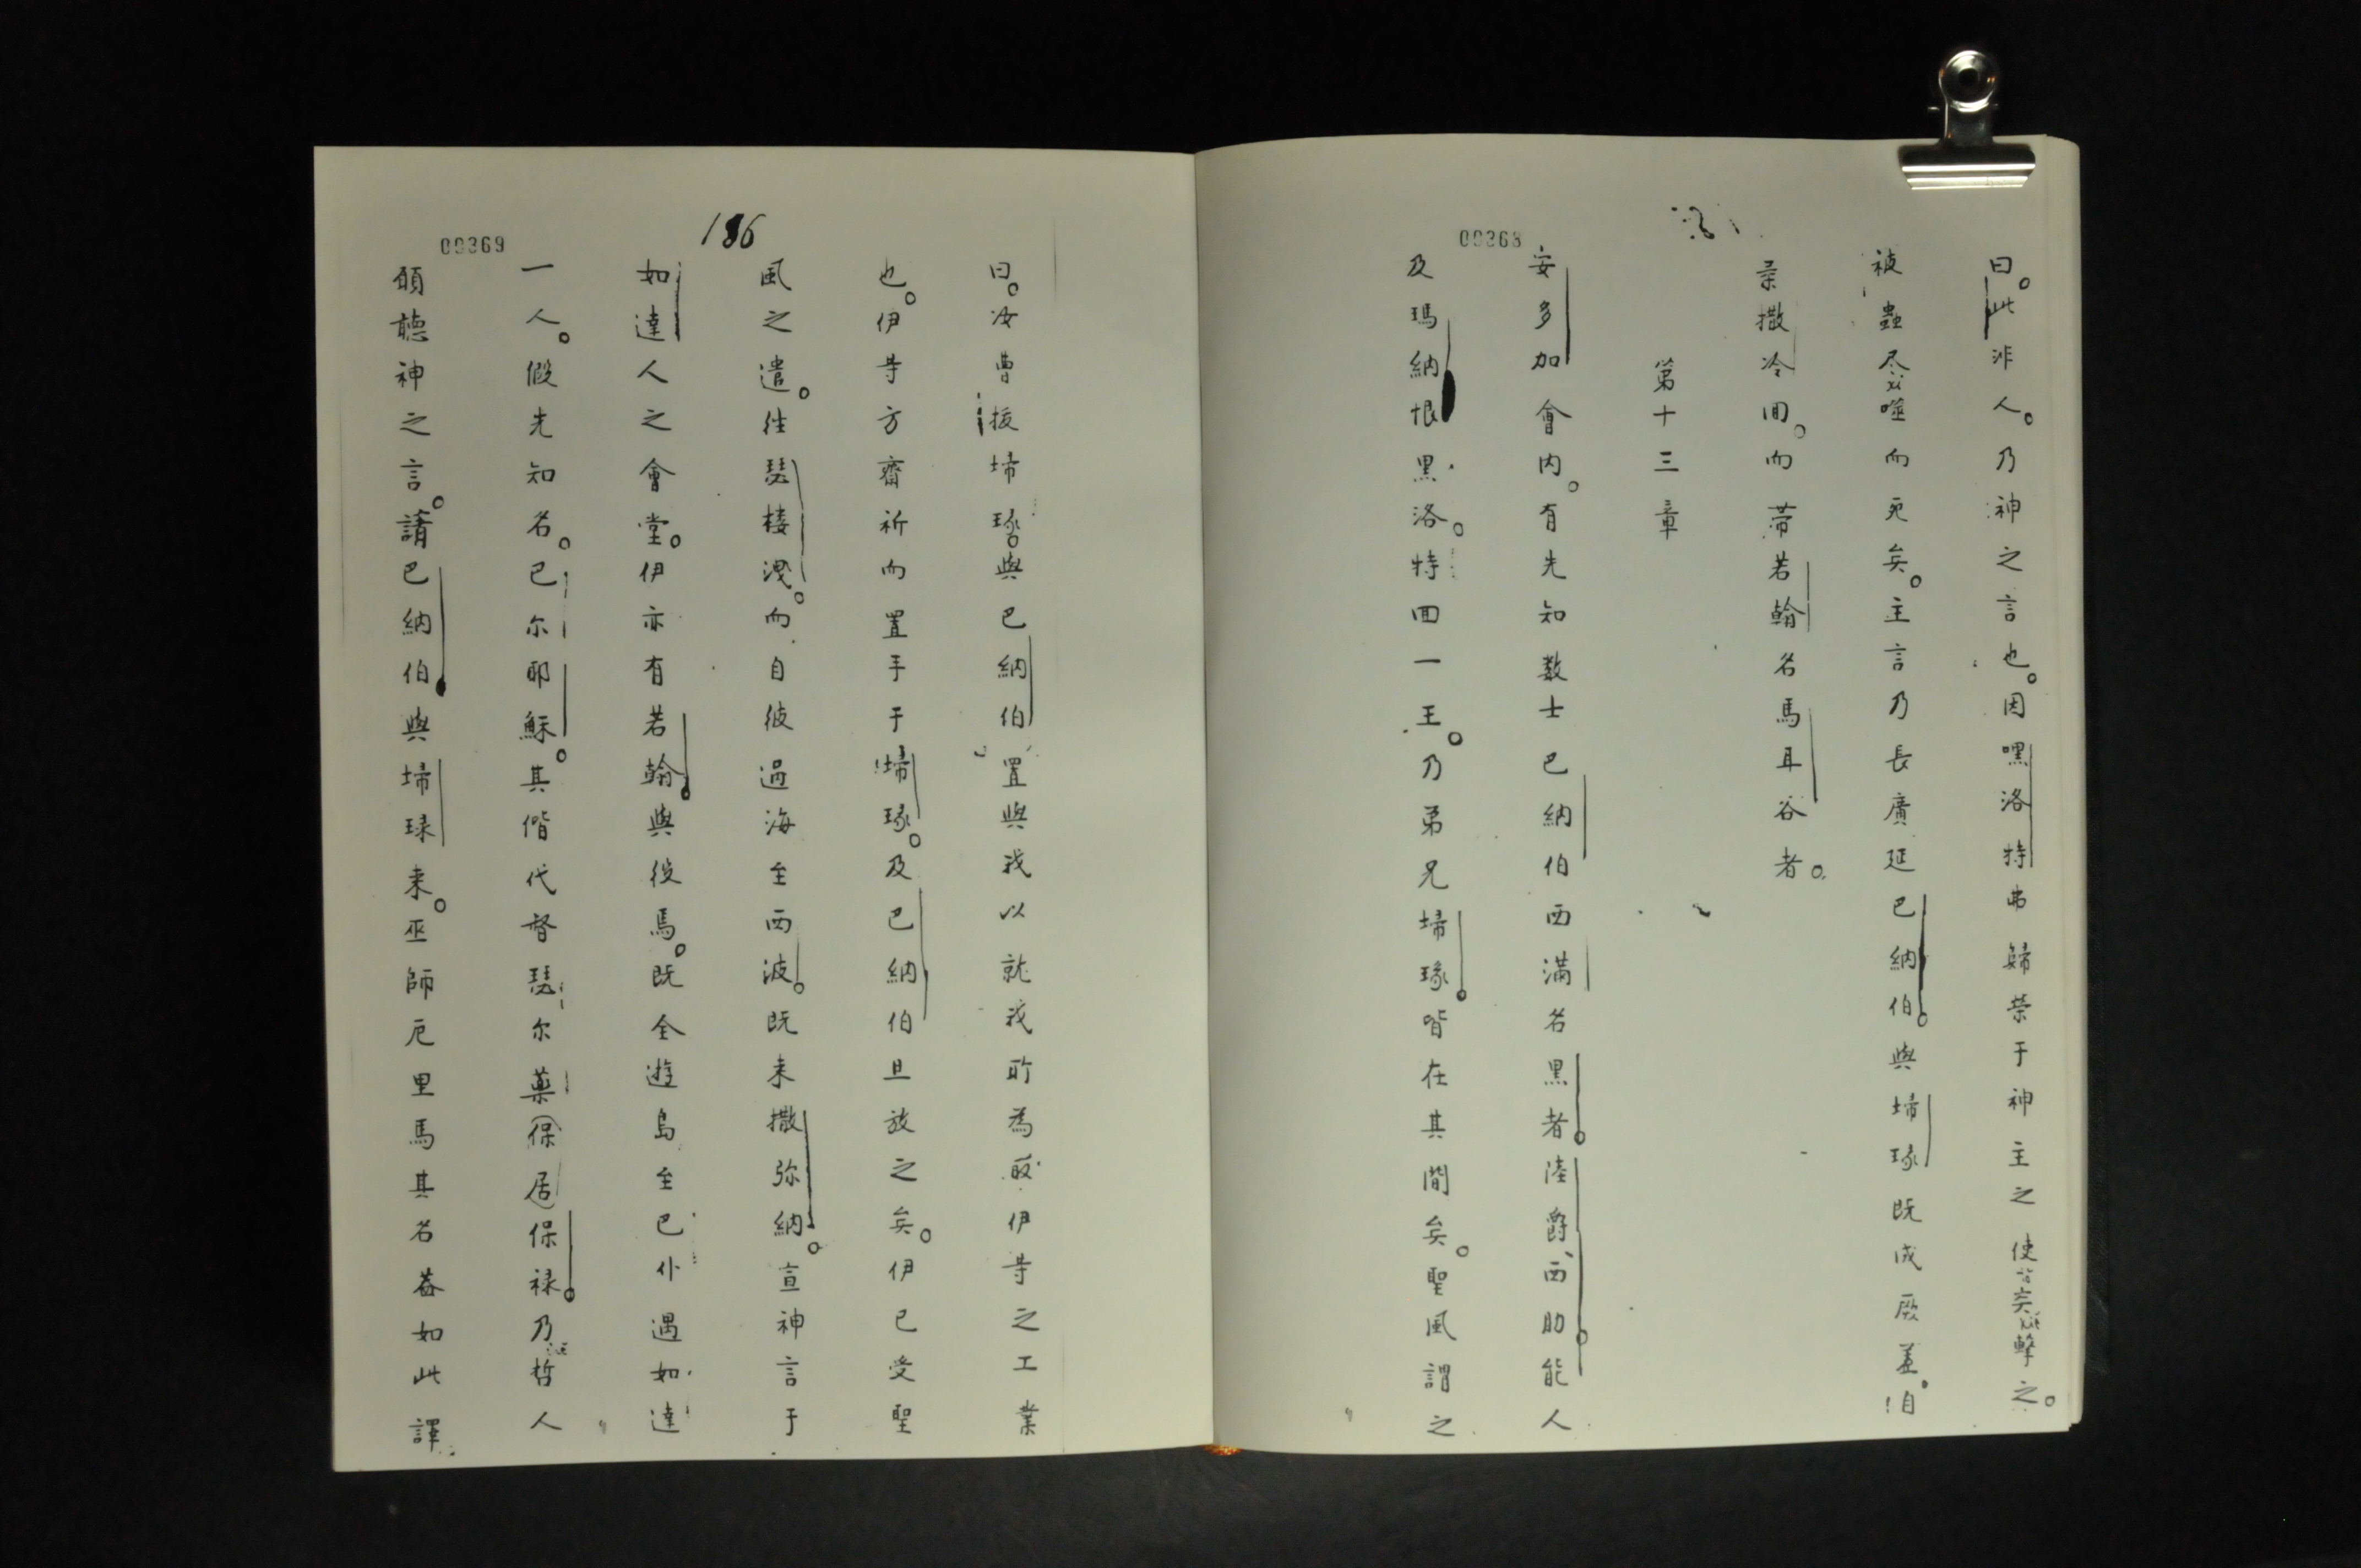 00368
曰。此非人。乃神之言也。因嘿洛特弗歸榮于神主之使突擊之。
被蟲尽噬而死矣。主言乃長廣延巴納伯。與埽琭既成厥差。自
柔撒冷回。而帶若翰名馬耳谷者。
第十三章
安多加會内。有先知教士巴納伯西满名黑者。陸爵西助能人
及瑪納恨黑洛。特回一王。乃弟兄埽琭。皆在其間矣。聖風謂之
00369
186
曰。汝曹拔埽琭與巴納伯置與我以就我所為取伊等之工業
也。伊等方齋祈而置手于埽琭。及巴納伯且放之矣。伊已受聖
風之遣。往琵楼洩。而自彼過海至西波。既来撒弥納。宣神言于
如達人之會堂。伊亦有若翰與役焉。既全遊島至巴仆遇如達
一人。假先知名。巴尔耶穌。其偕代督琵尔藥保居保禄。乃哲人
願聽神之言。請巴納伯與埽琭来。巫師厄里馬其名葢如此譯